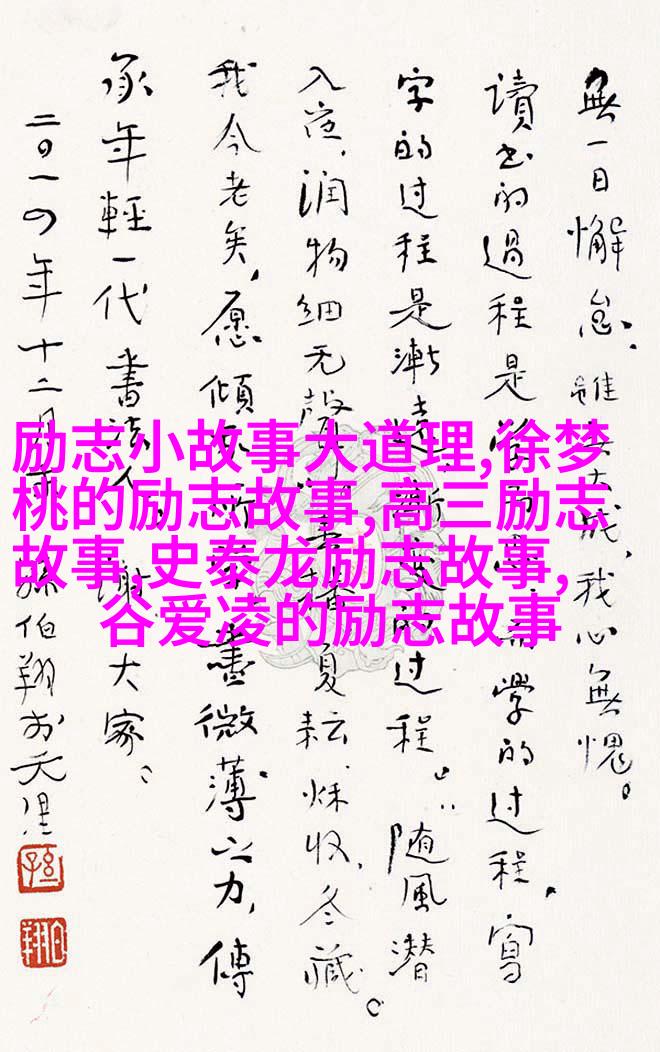 無一日懈怠,雖大成,我心無愧。
讀书的過程是學的过程,寫
字的过程是漸的过程。随風潜
入夜,润物细无聲夏耘.秋收,冬藏。
我今老矣,愿傾盡微薄之力,傳
承年輕一代書法人謝大家。
二〇一四年十二月孫伯翔於天津
励志小故事大道理,徐梦
桃的励志故事,高三励志
故事,史泰龙励志故事,
谷爱凌的励志故事